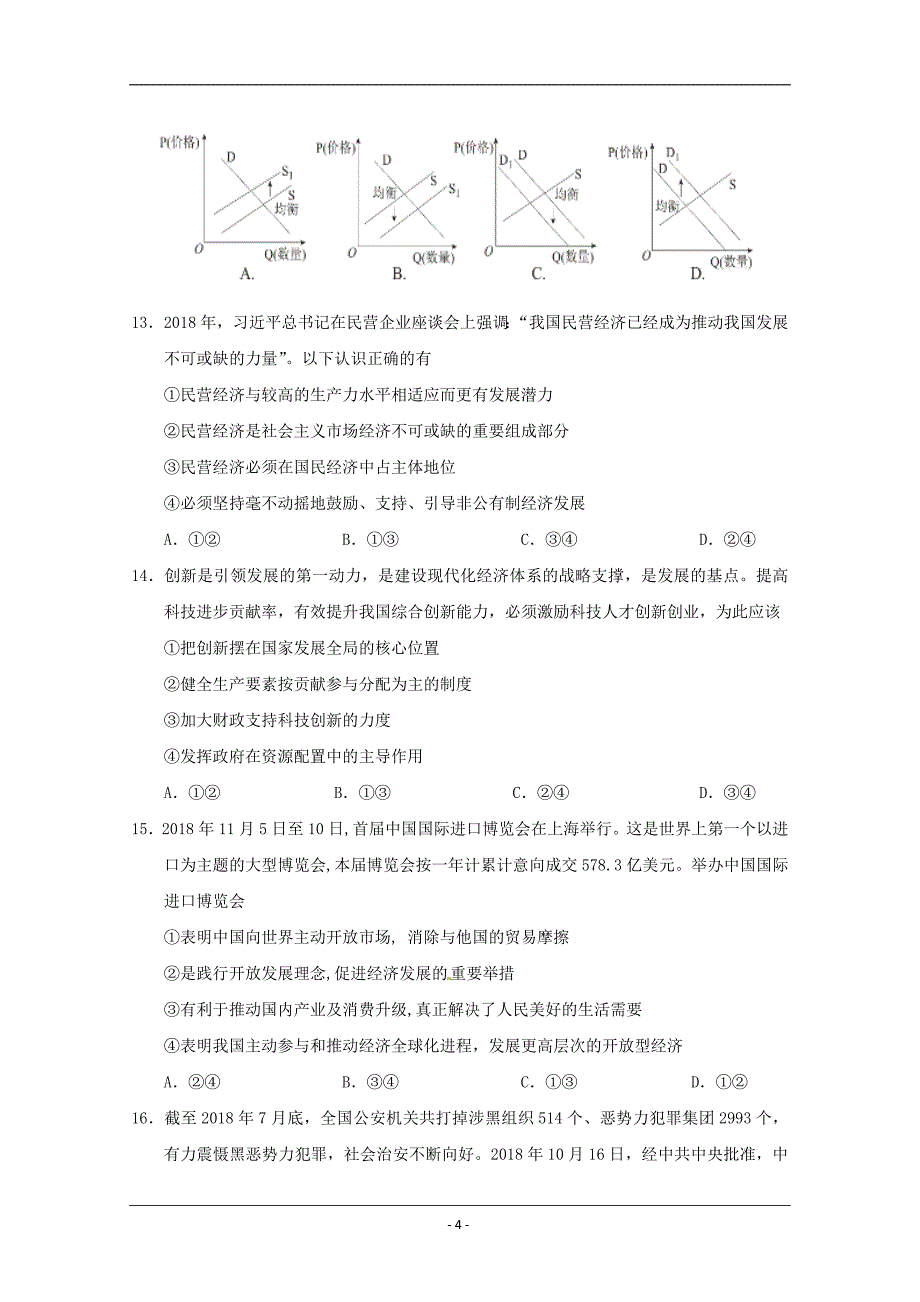 P(价格) D S₁ S 均衡 O Q(数量) A.
P(价格) D S 均衡 S₁ O Q(数量) B.
P(价格) D₁ D S 均衡 O Q(数量) C.
P(价格) D₁ D S 均衡 O Q(数量) D.
13．2018 年，习近平总书记在民营企业座谈会上强调：“我国民营经济已经成为推动我国发展
不可或缺的力量”。以下认识正确的有
①民营经济与较高的生产力水平相适应而更有发展潜力
②民营经济是社会主义市场经济不可或缺的重要组成部分
③民营经济必须在国民经济中占主体地位
④必须坚持毫不动摇地鼓励、支持、引导非公有制经济发展
A．①② B．①③ C．③④ D．②④
14．创新是引领发展的第一动力，是建设现代化经济体系的战略支撑，是发展的基点。提高
科技进步贡献率，有效提升我国综合创新能力，必须激励科技人才创新创业，为此应该
①把创新摆在国家发展全局的核心位置
②健全生产要素按贡献参与分配为主的制度
③加大财政支持科技创新的力度
④发挥政府在资源配置中的主导作用
A．①② B．①③ C．②④ D．③④
15．2018 年 11 月 5 日至 10 日,首届中国国际进口博览会在上海举行。这是世界上第一个以进
口为主题的大型博览会,本届博览会按一年计累计意向成交 578.3 亿美元。举办中国国际
进口博览会
①表明中国向世界主动开放市场, 消除与他国的贸易摩擦
②是践行开放发展理念,促进经济发展的重要举措
③有利于推动国内产业及消费升级,真正解决了人民美好的生活需要
④表明我国主动参与和推动经济全球化进程，发展更高层次的开放型经济
A．②④ B．③④ C．①③ D．①②
16．截至 2018 年 7 月底，全国公安机关共打掉涉黑组织 514 个、恶势力犯罪集团 2993 个，
有力震慑黑恶势力犯罪，社会治安不断向好。2018 年 10 月 16 日，经中共中央批准，中
- 4 -